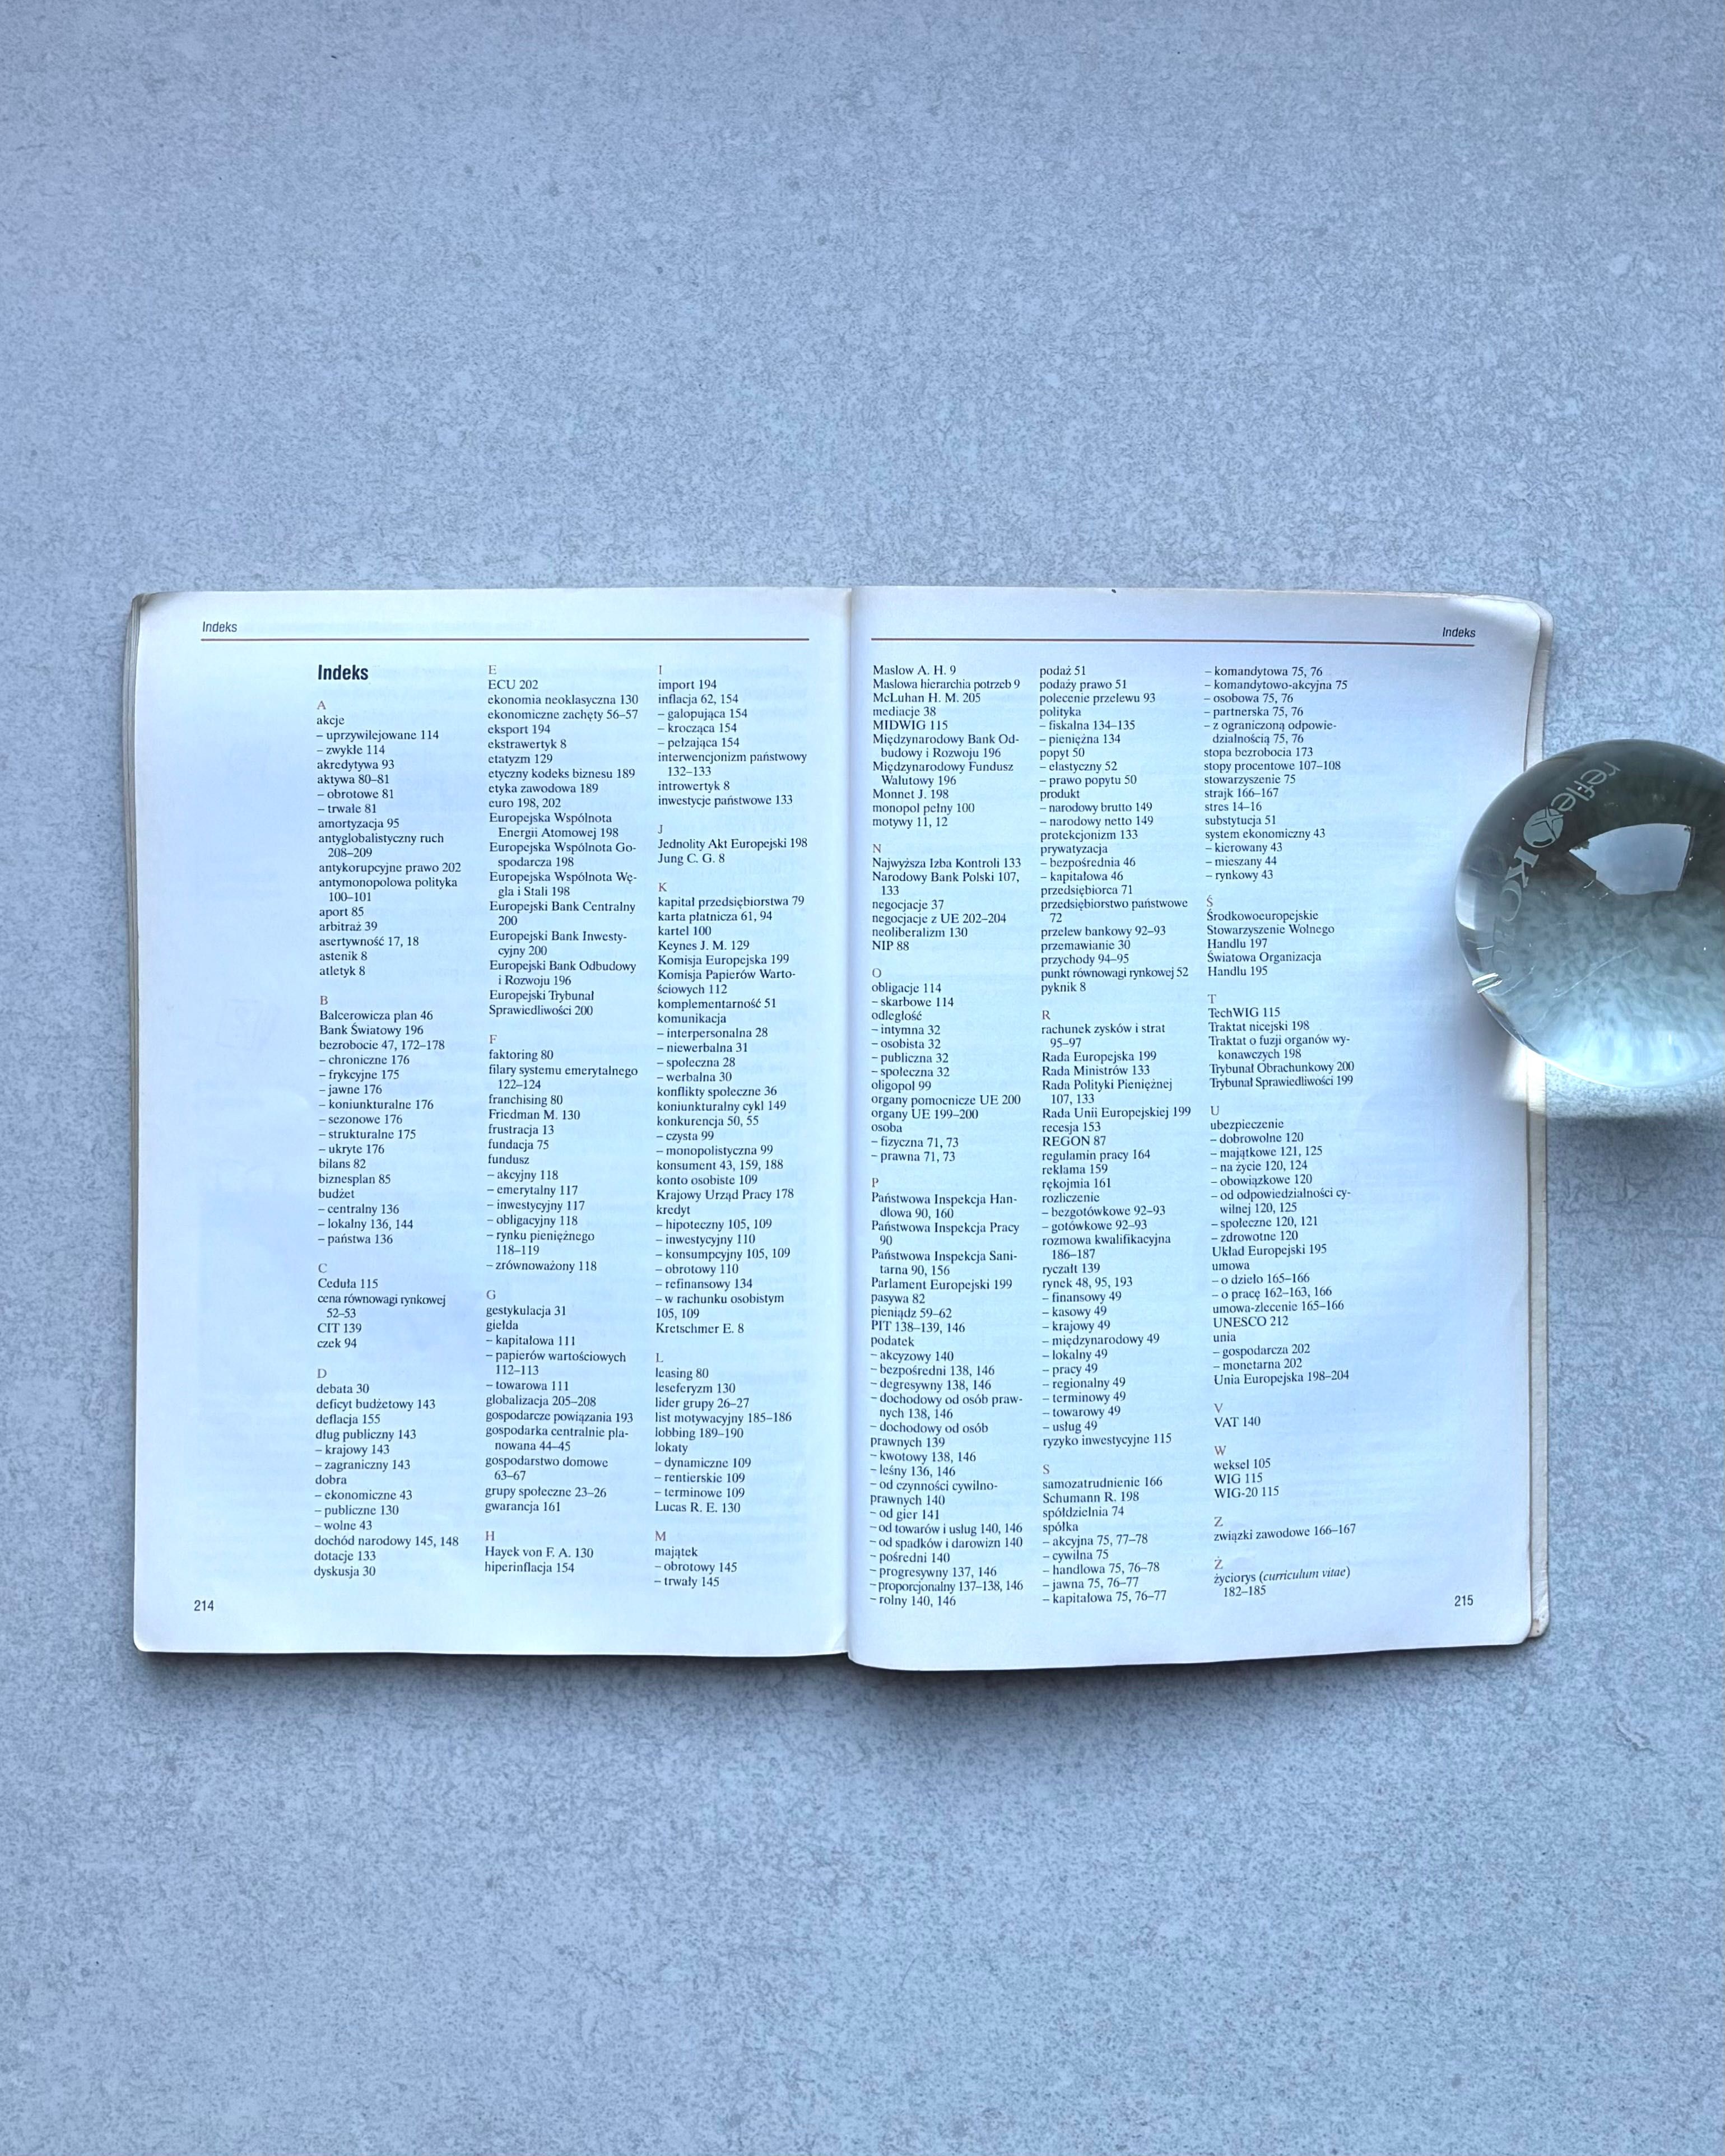 Indeks
Indeks
A
akcje
– uprzywilejowane 114
– zwykłe 114
akredytywa 93
aktywa 80–81
– obrotowe 81
– trwałe 81
amortyzacja 95
antyglobalistyczny ruch
208–209
antykorupcyjne prawo 202
antymonopolowa polityka
100–101
aport 85
arbitraż 39
asertywność 17, 18
astenik 8
atletyk 8
B
Balcerowicza plan 46
Bank Światowy 196
bezrobocie 47, 172–178
– chroniczne 176
– frykcyjne 175
– jawne 176
– koniunkturalne 176
– sezonowe 176
– strukturalne 175
– ukryte 176
bilans 82
biznesplan 85
budżet
– centralny 136
– lokalny 136, 144
– państwa 136
C
Ceduła 115
cena równowagi rynkowej
52–53
CIT 139
czek 94
D
debata 30
deficyt budżetowy 143
deflacja 155
dług publiczny 143
– krajowy 143
– zagraniczny 143
dobra
– ekonomiczne 43
– publiczne 130
– wolne 43
dochód narodowy 145, 148
dotacje 133
dyskusja 30
E
ECU 202
ekonomia neoklasyczna 130
ekonomiczne zachęty 56–57
eksport 194
ekstrawertyk 8
etatyzm 129
etyczny kodeks biznesu 189
etyka zawodowa 189
euro 198, 202
Europejska Wspólnota
Energii Atomowej 198
Europejska Wspólnota Go-
spodarcza 198
Europejska Wspólnota Wę-
gla i Stali 198
Europejski Bank Centralny
200
Europejski Bank Inwesty-
cyjny 200
Europejski Bank Odbudowy
i Rozwoju 196
Europejski Trybunał
Sprawiedliwości 200
F
faktoring 80
filary systemu emerytalnego
122–124
franchising 80
Friedman M. 130
frustracja 13
fundacja 75
fundusz
– akcyjny 118
– emerytalny 117
– inwestycyjny 117
– obligacyjny 118
– rynku pieniężnego
118–119
– zrównoważony 118
G
gestykulacja 31
giełda
– kapitałowa 111
– papierów wartościowych
112–113
– towarowa 111
globalizacja 205–208
gospodarcze powiązania 193
gospodarka centralnie pla-
nowana 44–45
gospodarstwo domowe
63–67
grupy społeczne 23–26
gwarancja 161
H
Hayek von F. A. 130
hiperinflacja 154
I
import 194
inflacja 62, 154
– galopująca 154
– krocząca 154
– pełzająca 154
interwencjonizm państwowy
132–133
introwertyk 8
inwestycje państwowe 133
J
Jednolity Akt Europejski 198
Jung C. G. 8
K
kapitał przedsiębiorstwa 79
karta płatnicza 61, 94
kartel 100
Keynes J. M. 129
Komisja Europejska 199
Komisja Papierów Warto-
ściowych 112
komplementarność 51
komunikacja
– interpersonalna 28
– niewerbalna 31
– społeczna 28
– werbalna 30
konflikty społeczne 36
koniunkturalny cykl 149
konkurencja 50, 55
– czysta 99
– monopolistyczna 99
konsument 43, 159, 188
konto osobiste 109
Krajowy Urząd Pracy 178
kredyt
– hipoteczny 105, 109
– inwestycyjny 110
– konsumpcyjny 105, 109
– obrotowy 110
– refinansowy 134
– w rachunku osobistym
105, 109
Kretschmer E. 8
L
leasing 80
leseferyzm 130
lider grupy 26–27
list motywacyjny 185–186
lobbing 189–190
lokaty
– dynamiczne 109
– rentierskie 109
– terminowe 109
Lucas R. E. 130
M
majątek
– obrotowy 145
– trwały 145
214
Indeks
Maslow A. H. 9
Maslowa hierarchia potrzeb 9
McLuhan H. M. 205
mediacje 38
MIDWIG 115
Międzynarodowy Bank Od-
budowy i Rozwoju 196
Międzynarodowy Fundusz
Walutowy 196
Monnet J. 198
monopol pełny 100
motywy 11, 12
N
Najwyższa Izba Kontroli 133
Narodowy Bank Polski 107,
133
negocjacje 37
negocjacje z UE 202–204
neoliberalizm 130
NIP 88
O
obligacje 114
– skarbowe 114
odległość
– intymna 32
– osobista 32
– publiczna 32
– społeczna 32
oligopol 99
organy pomocnicze UE 200
organy UE 199–200
osoba
– fizyczna 71, 73
– prawna 71, 73
P
Państwowa Inspekcja Han-
dlowa 90, 160
Państwowa Inspekcja Pracy
90
Państwowa Inspekcja Sani-
tarna 90, 156
Parlament Europejski 199
pasywa 82
pieniądz 59–62
PIT 138–139, 146
podatek
– akcyzowy 140
– bezpośredni 138, 146
– degresywny 138, 146
– dochodowy od osób praw-
nych 138, 146
– dochodowy od osób
prawnych 139
– kwotowy 138, 146
– leśny 136, 146
– od czynności cywilno-
prawnych 140
– od gier 141
– od towarów i usług 140, 146
– od spadków i darowizn 140
– pośredni 140
– progresywny 137, 146
– proporcjonalny 137–138, 146
– rolny 140, 146
podaż 51
podaży prawo 51
polecenie przelewu 93
polityka
– fiskalna 134–135
– pieniężna 134
popyt 50
– elastyczny 52
– prawo popytu 50
produkt
– narodowy brutto 149
– narodowy netto 149
protekcjonizm 133
prywatyzacja
– bezpośrednia 46
– kapitałowa 46
przedsiębiorca 71
przedsiębiorstwo państwowe
72
przelew bankowy 92–93
przemawianie 30
przychody 94–95
punkt równowagi rynkowej 52
pyknik 8
R
rachunek zysków i strat
95–97
Rada Europejska 199
Rada Ministrów 133
Rada Polityki Pieniężnej
107, 133
Rada Unii Europejskiej 199
recesja 153
REGON 87
regulamin pracy 164
reklama 159
rękojmia 161
rozliczenie
– bezgotówkowe 92–93
– gotówkowe 92–93
rozmowa kwalifikacyjna
186–187
ryczałt 139
rynek 48, 95, 193
– finansowy 49
– kasowy 49
– krajowy 49
– międzynarodowy 49
– lokalny 49
– pracy 49
– regionalny 49
– terminowy 49
– towarowy 49
– usług 49
ryzyko inwestycyjne 115
S
samozatrudnienie 166
Schumann R. 198
spółdzielnia 74
spółka
– akcyjna 75, 77–78
– cywilna 75
– handlowa 75, 76–78
– jawna 75, 76–77
– kapitałowa 75, 76–77
– komandytowa 75, 76
– komandytowo-akcyjna 75
– osobowa 75, 76
– partnerska 75, 76
– z ograniczoną odpowie-
dzialnością 75, 76
stopa bezrobocia 173
stopy procentowe 107–108
stowarzyszenie 75
strajk 166–167
stres 14–16
substytucja 51
system ekonomiczny 43
– kierowany 43
– mieszany 44
– rynkowy 43
Ś
Środkowoeuropejskie
Stowarzyszenie Wolnego
Handlu 197
Światowa Organizacja
Handlu 195
T
TechWIG 115
Traktat nicejski 198
Traktat o fuzji organów wy-
konawczych 198
Trybunał Obrachunkowy 200
Trybunał Sprawiedliwości 199
U
ubezpieczenie
– dobrowolne 120
– majątkowe 121, 125
– na życie 120, 124
– obowiązkowe 120
– od odpowiedzialności cy-
wilnej 120, 125
– społeczne 120, 121
– zdrowotne 120
Układ Europejski 195
umowa
– o dzieło 165–166
– o pracę 162–163, 166
umowa-zlecenie 165–166
UNESCO 212
unia
– gospodarcza 202
– monetarna 202
Unia Europejska 198–204
V
VAT 140
W
weksel 105
WIG 115
WIG-20 115
Z
związki zawodowe 166–167
Ż
życiorys (curriculum vitae)
182–185
215